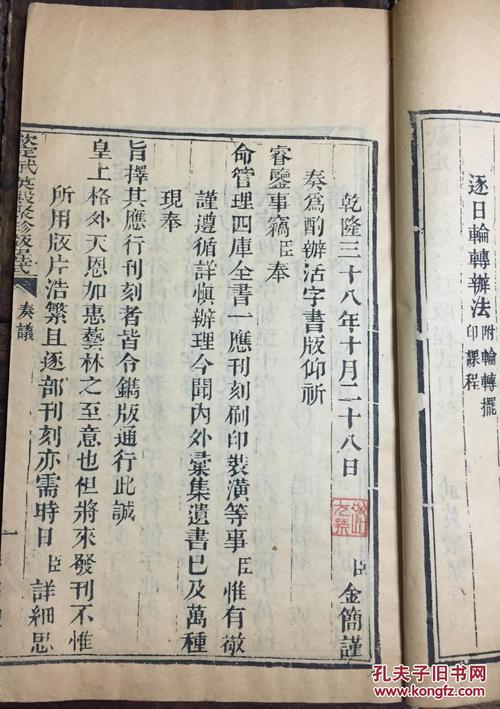 逐日輪轉辦法 附輪轉擺印課程
乾隆三十八年十月二十八日 臣金簡謹
奏爲酌辦活字書版仰祈
睿鑒事竊臣奉
命管理四庫全書一應刊刻刷印裝潢等事臣惟有敬
謹遵循詳慎辦理今聞內外彙集遺書已及萬種
現奉
旨擇其應行刊刻者皆令鐫版通行此誠
皇上格外天恩加惠藝林之至意也但將來發刊不惟
所用版片浩繁且逐部刊刻亦需時日臣詳細思
欽定武英殿聚珍版程式 奏議 一
孔夫子旧书网
KONGFZ.COM